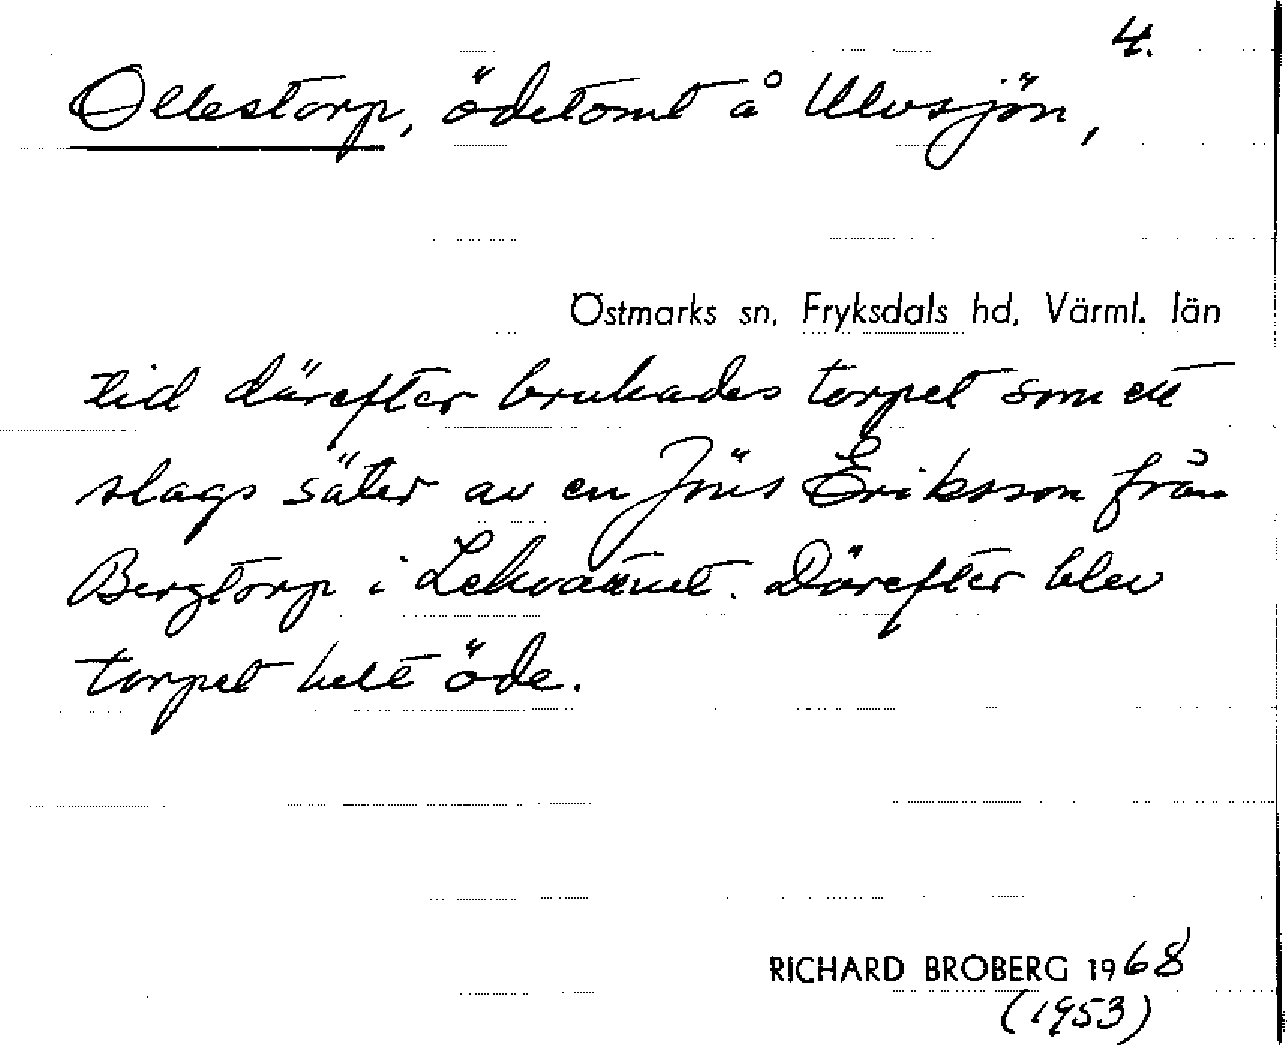 4.
Ollestorp, ödetomt å Ulvsjön,
Östmarks sn, Fryksdals hd, Värml. län
tid därefter brukades torpet som ett
slags säter av en Jöns Eriksson från
Bergtorp i Lekvattnet. Därefter blev
torpet helt öde.
RICHARD BROBERG 1968
(1953)